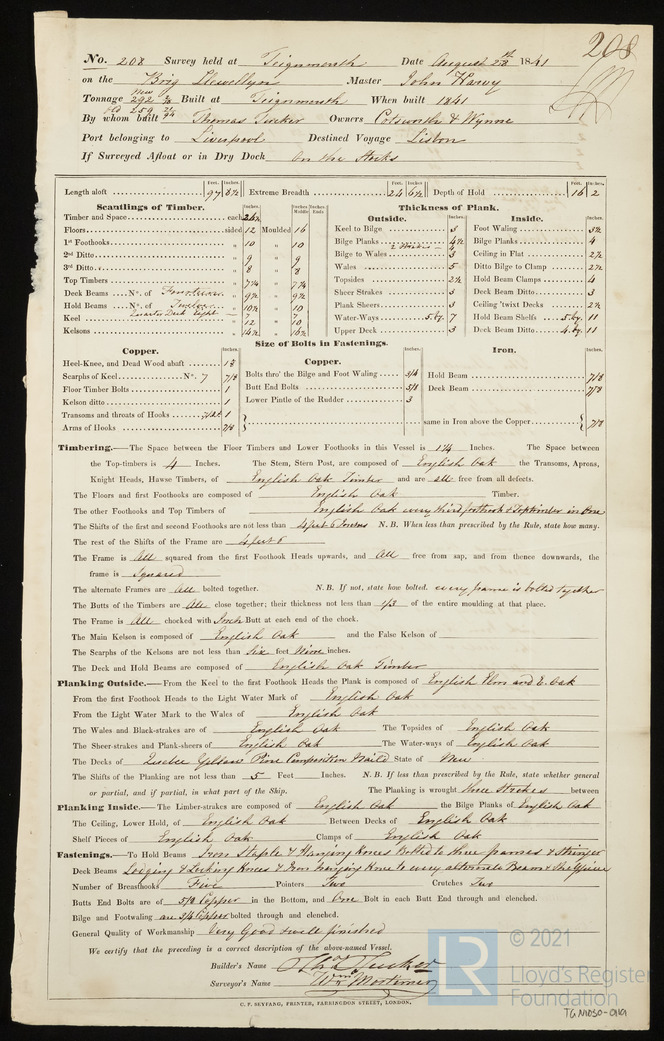 208
No. 208 Survey held at Teignmouth Date August 28th 1841
on the Brig Llewellyn Master John Harvy
Tonnage New 292 Old 259 Built at Teignmouth When built 1841
By whom built Thomas Tucker Owners Cotsworth & Wynne
Port belonging to Liverpool Destined Voyage Lisbon
If Surveyed Afloat or in Dry Dock On the Stocks
Length aloft Feet. 97 Inches. 8½ Extreme Breadth Feet. 24 Inches. 6½ Depth of Hold Feet. 16 Inches. 2
Scantlings of Timber.
Timber and Space each 26½
Floors sided 12 Moulded 16
1st Foothooks " 10 " 10
2nd Ditto " 9 " 9
3rd Ditto " 8 " 8
Top Timbers " 7¼ " 7¼
Deck Beams No. of Fourteen " 9½ " 9½
Hold Beams No. of Twelve " 10½ " 10½
Quarter Deck Eight 7 7
Keel " 12 " 10
Kelsons " 14½ " 14½
Thickness of Plank.
Outside.
Keel to Bilge 3
Bilge Planks 4½
2 Strakes 4
Bilge to Wales 3
Wales 5
Topsides 2½
Sheer Strakes 3
Plank Sheers 3
Water-Ways 5 by 7
Upper Deck 3
Inside.
Foot Waling 3½
Bilge Planks 4
Ceiling in Flat 2½
Ditto Bilge to Clamp 2½
Hold Beam Clamps 4
Deck Beam Ditto 3
Ceiling 'twixt Decks 2½
Hold Beam Shelfs 5 by 11
Deck Beam Ditto 4 by 11
Size of Bolts in Fastenings.
Copper.
Heel-Knee, and Dead Wood abaft 1⅛
Scarphs of Keel No. 7 7/8
Floor Timber Bolts 1
Kelson ditto 1
Transoms and throats of Hooks 7/8 & 1
Arms of Hooks 7/8
Copper.
Bolts thro' the Bilge and Foot Waling 3/4
Butt End Bolts 5/8
Lower Pintle of the Rudder 3
Iron.
Hold Beam 7/8
Deck Beam 7/8
same in Iron above the Copper 7/8
Timbering.—The Space between the Floor Timbers and Lower Foothooks in this Vessel is 1¼ Inches. The Space between
the Top-timbers is 4 Inches. The Stem, Stern Post, are composed of English Oak the Transoms, Aprons,
Knight Heads, Hawse Timbers, of English Oak Timber and are all free from all defects.
The Floors and first Foothooks are composed of English Oak Timber.
The other Foothooks and Top Timbers of English Oak every third foothook & Toptimber in One
The Shifts of the first and second Foothooks are not less than 4 feet 6 Inches N. B. When less than prescribed by the Rule, state how many.
The rest of the Shifts of the Frame are 4 feet 6
The Frame is All squared from the first Foothook Heads upwards, and All free from sap, and from thence downwards, the
frame is Squared
The alternate Frames are All bolted together. N. B. If not, state how bolted. every frame is bolted together
The Butts of the Timbers are All close together; their thickness not less than 1/3 of the entire moulding at that place.
The Frame is All chocked with Inch Butt at each end of the chock.
The Main Kelson is composed of English Oak and the False Kelson of
The Scarphs of the Kelsons are not less than Six feet Nine inches.
The Deck and Hold Beams are composed of English Oak Timber
Planking Outside.—From the Keel to the first Foothook Heads the Plank is composed of English Elm and E. Oak
From the first Foothook Heads to the Light Water Mark of English Oak
From the Light Water Mark to the Wales of English Oak
The Wales and Black-strakes are of English Oak The Topsides of English Oak
The Sheer-strakes and Plank-sheers of English Oak The Water-ways of English Oak
The Decks of Quebec Yellow Pine Composition Nail'd State of New
The Shifts of the Planking are not less than 5 Feet Inches. N. B. If less than prescribed by the Rule, state whether general
or partial, and if partial, in what part of the Ship. The Planking is wrought three Strakes between
Planking Inside.—The Limber-strakes are composed of English Oak the Bilge Planks of English Oak
The Ceiling, Lower Hold, of English Oak Between Decks of English Oak
Shelf Pieces of English Oak Clamps of English Oak
Fastenings.—To Hold Beams Iron Staple & Hanging Knees Bolted to three frames & Stringer
Deck Beams Lodging & Locking Knees & Iron hanging Knee to every alternate Beam & Shelfpiece
Number of Breasthooks Five Pointers Two Crutches Two
Butts End Bolts are of 5/8 Copper in the Bottom, and One Bolt in each Butt End through and clenched.
Bilge and Footwaling are 3/4 Copper bolted through and clenched.
General Quality of Workmanship Very Good & well finished
We certify that the preceding is a correct description of the above-named Vessel.
Builder's Name Thos Tucker
Surveyor's Name Wm Mortimer
C. F. SEYFANG, PRINTER, FARRINGDON STREET, LONDON.
LR
© 2021
Lloyd's Register
Foundation
TGN1030-0119